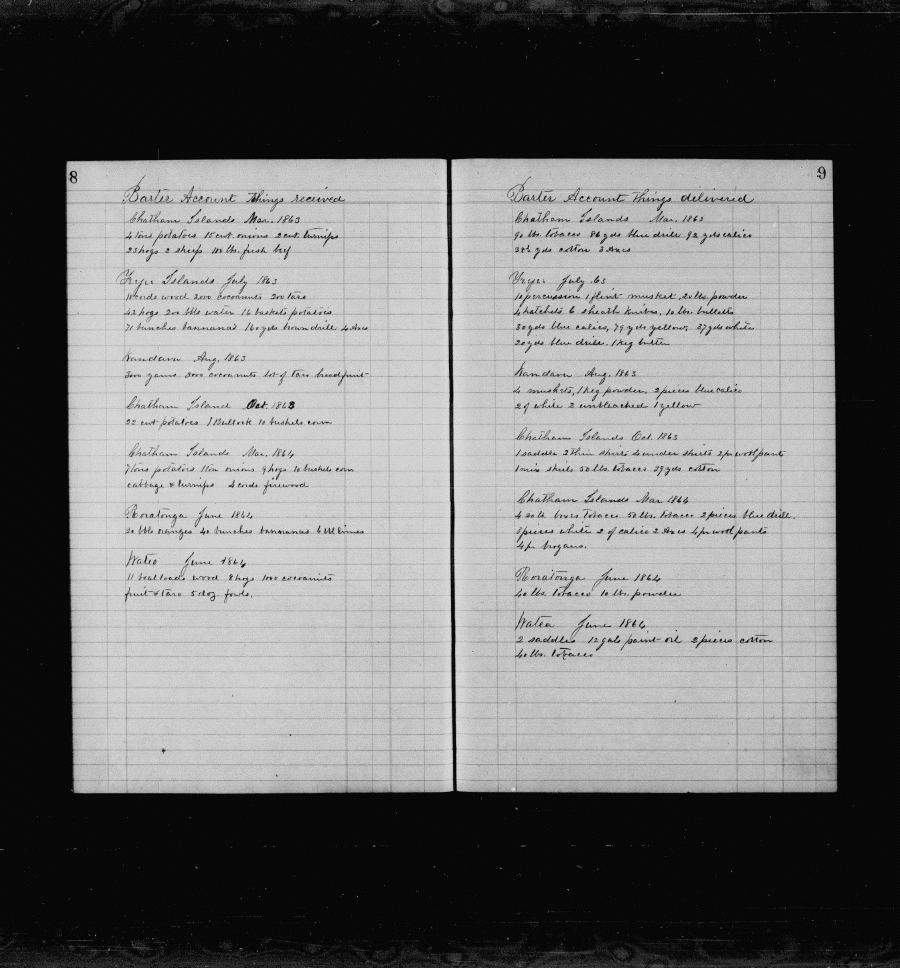 8
Barter Account things received
Chatham Islands Mar. 1863
4 tons potatoes 15 cwt. onions 2 cwt. turnips
23 hogs 2 sheep 100 lbs. fresh beef
Islands July 1863
cords wood 2000 cocoanuts 200 taro
42 hogs 200 bbls water 16 baskets potatoes
71 bunches bannanas 160 yds brown drill 4 Axes
Aug. 1863
3000 yams 3000 cocoanuts lot of taro breadfruit
Chatham Island Oct. 1863
22 cwt potatoes 1 Bullock 10 bushels corn
Chatham Islands Mar. 1864
7 tons potatoes 1 ton onions 9 hogs 10 bushels corn
cabbage & turnips 4 cords firewood
Roratonga June 1864
20 bbls oranges 40 bunches bannanas 6 bbl limes
Wateo June 1864
11 boat loads wood 8 hogs 1000 cocoanuts
fruit & taro 5 doz fowls.
9
Barter Account things delivered
Chatham Islands Mar. 1863
90 lbs. tobacco 86 yds blue drill 92 yds calico
yds cotton 3 Axes
July 63
10 percussion 1 flint musket 20 lbs. powder
4 hatchets 6 sheath knives, 10 lbs. bullets
30 yds blue calico, 79 yds yellow, 37 yds white
20 yds blue drill. 1 keg butter
Aug. 1863
4 muskets, 1 keg powder, 2 pieces blue calico
2 of white 2 unbleached 1 yellow
Chatham Islands Oct. 1863
1 saddle 2 shirts 4 under shirts 2 pr wool pants
skirts 50 lbs. tobacco 39 yds cotton
Chatham Islands Mar 1864
4 20 lb boxes tobacco 50 lbs. tobacco 2 pieces blue drill.
3 pieces white 2 of calico 2 Axes 4 pr wool pants
4 pr brogans.
Roratonga June 1864
40 lbs. tobacco 10 lbs. powder
Watea June 1864
2 saddles 12 gals paint oil 2 pieces cotton
40 lbs. tobacco